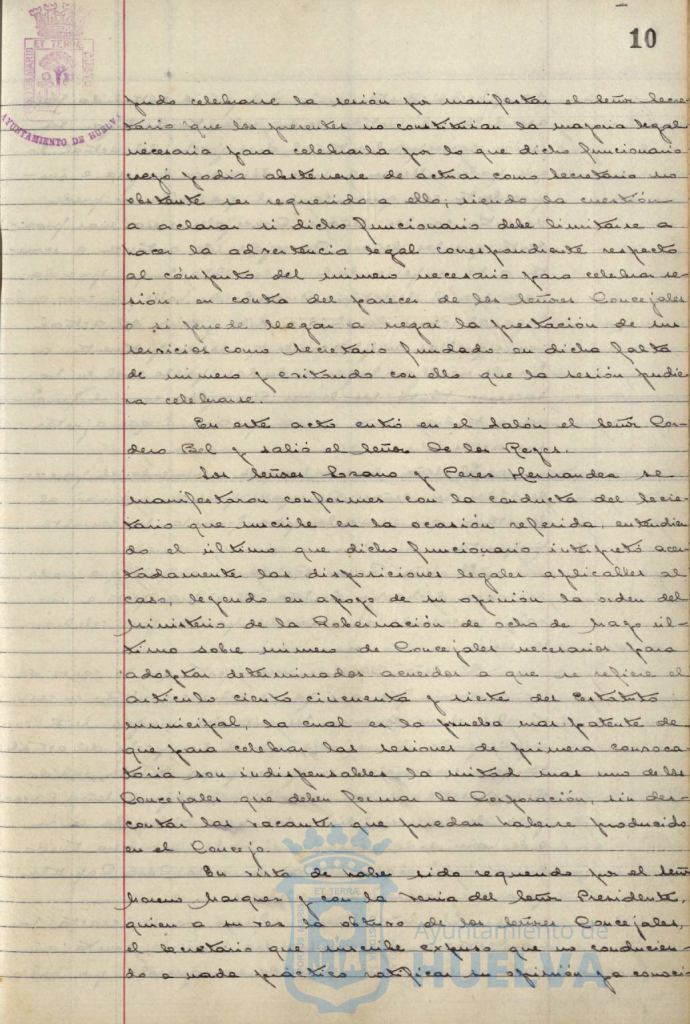 10
AYUNTAMIENTO DE HUELVA
pudo celebrarse la sesión por manifestar el señor Secre-
tario que los presentes no constituian la mayoria legal
necesaria para celebrarla por lo que dicho funcionario
creyó podia abstenerse de actuar como Secretario no
obstante ser requerido a ello; siendo la cuestión
a aclarar si dicho funcionario debe limitarse a
hacer la advertencia legal correspondiente respecto
al cómputo del número necesario para celebrar se-
sión en contra del parecer de los Señores Concejales
o si puede llegar a negar la prestación de sus
servicios como Secretario fundado en dicha falta
de número y evitando con ello que la sesión pudie
ra celebrarse.
En este acto entró en el salón el señor Cor-
dero Bel y salió el Señor De los Reyes.
Los Señores Lozano y Perez Hernandez se
manifestaron conformes con la conducta del Secre-
tario que suscribe en la ocasión referida, entendien
do el último que dicho funcionario interpretó acer-
tadamente las disposiciones legales aplicables al
caso, leyendo en apoyo de su opinión la orden del
Ministerio de la Gobernación de ocho de Mayo úl-
timo sobre número de Concejales necesarios para
adoptar determinados acuerdos a que se refiere el
artículo ciento cincuenta y siete del Estatuto
municipal, la cual es la prueba mas patente de
que para celebrar las sesiones de primera convoca-
toria son indispensables la mitad mas uno de los
Concejales que deben formar la Corporación, sin des-
contar las vacantes que puedan haberse producido
en el Concejo.
En vista de haber sido requerido por el señor
Moreno Marquez y con la venia del Señor Presidente,
quien a su vez la obtuvo de los Señores Concejales,
el Secretario que suscribe expuso que no conducien-
do a nada práctico ratificar su opinión ya conoci
ET TERRÆ
Ayuntamiento de
HUELVA